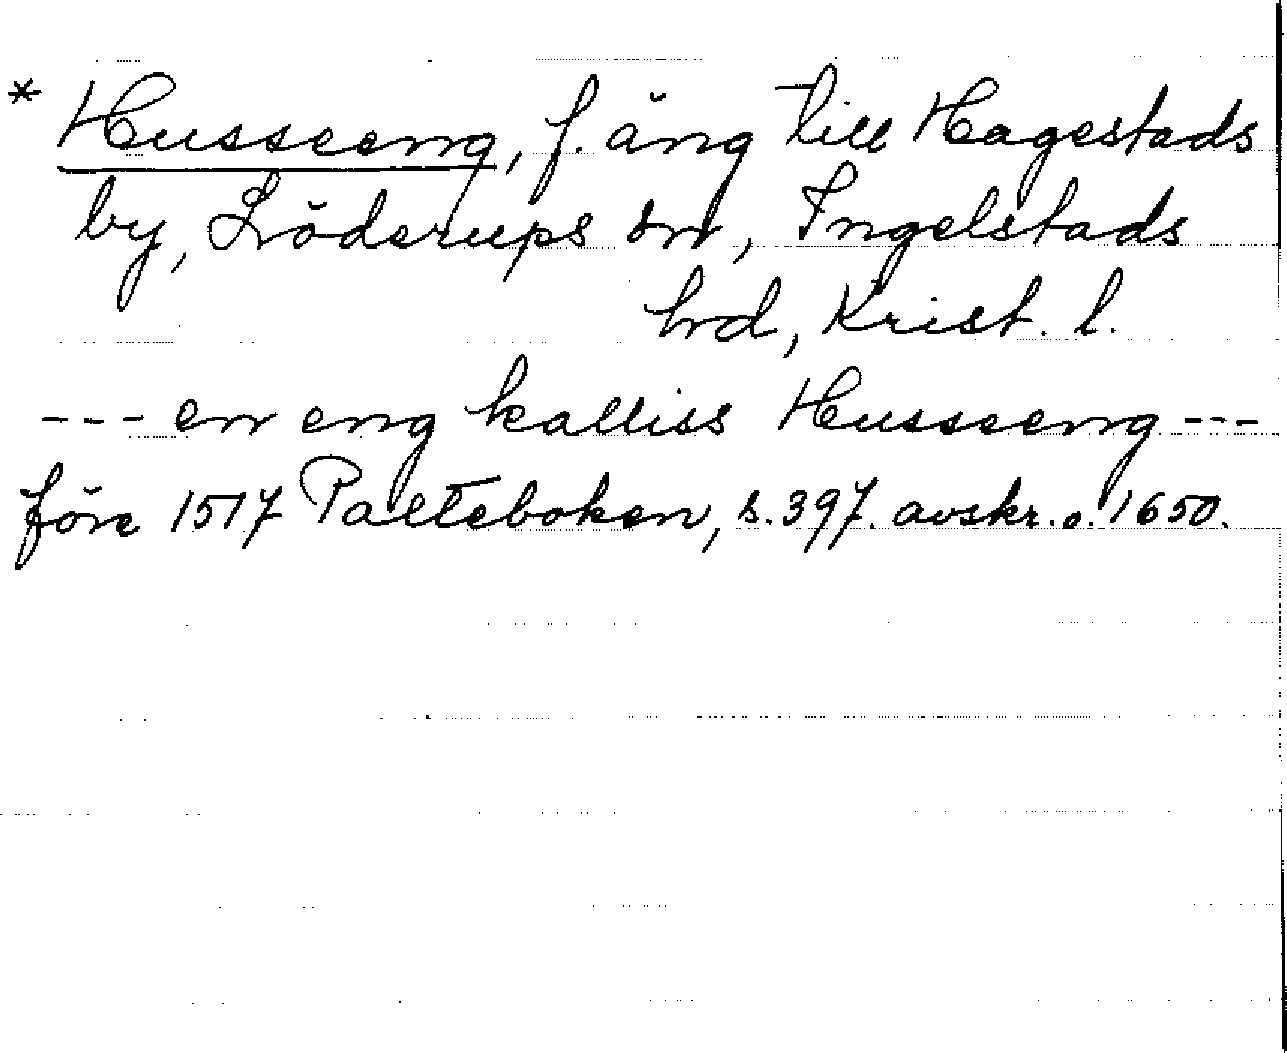 * Husseeng, f. äng till Hagestads
by, Löderups sn, Ingelstads
hrd, Krist. l.
--- en eng kalliss Husseeng ---
före 1517 Palteboken, s. 397. avskr. o. 1650.